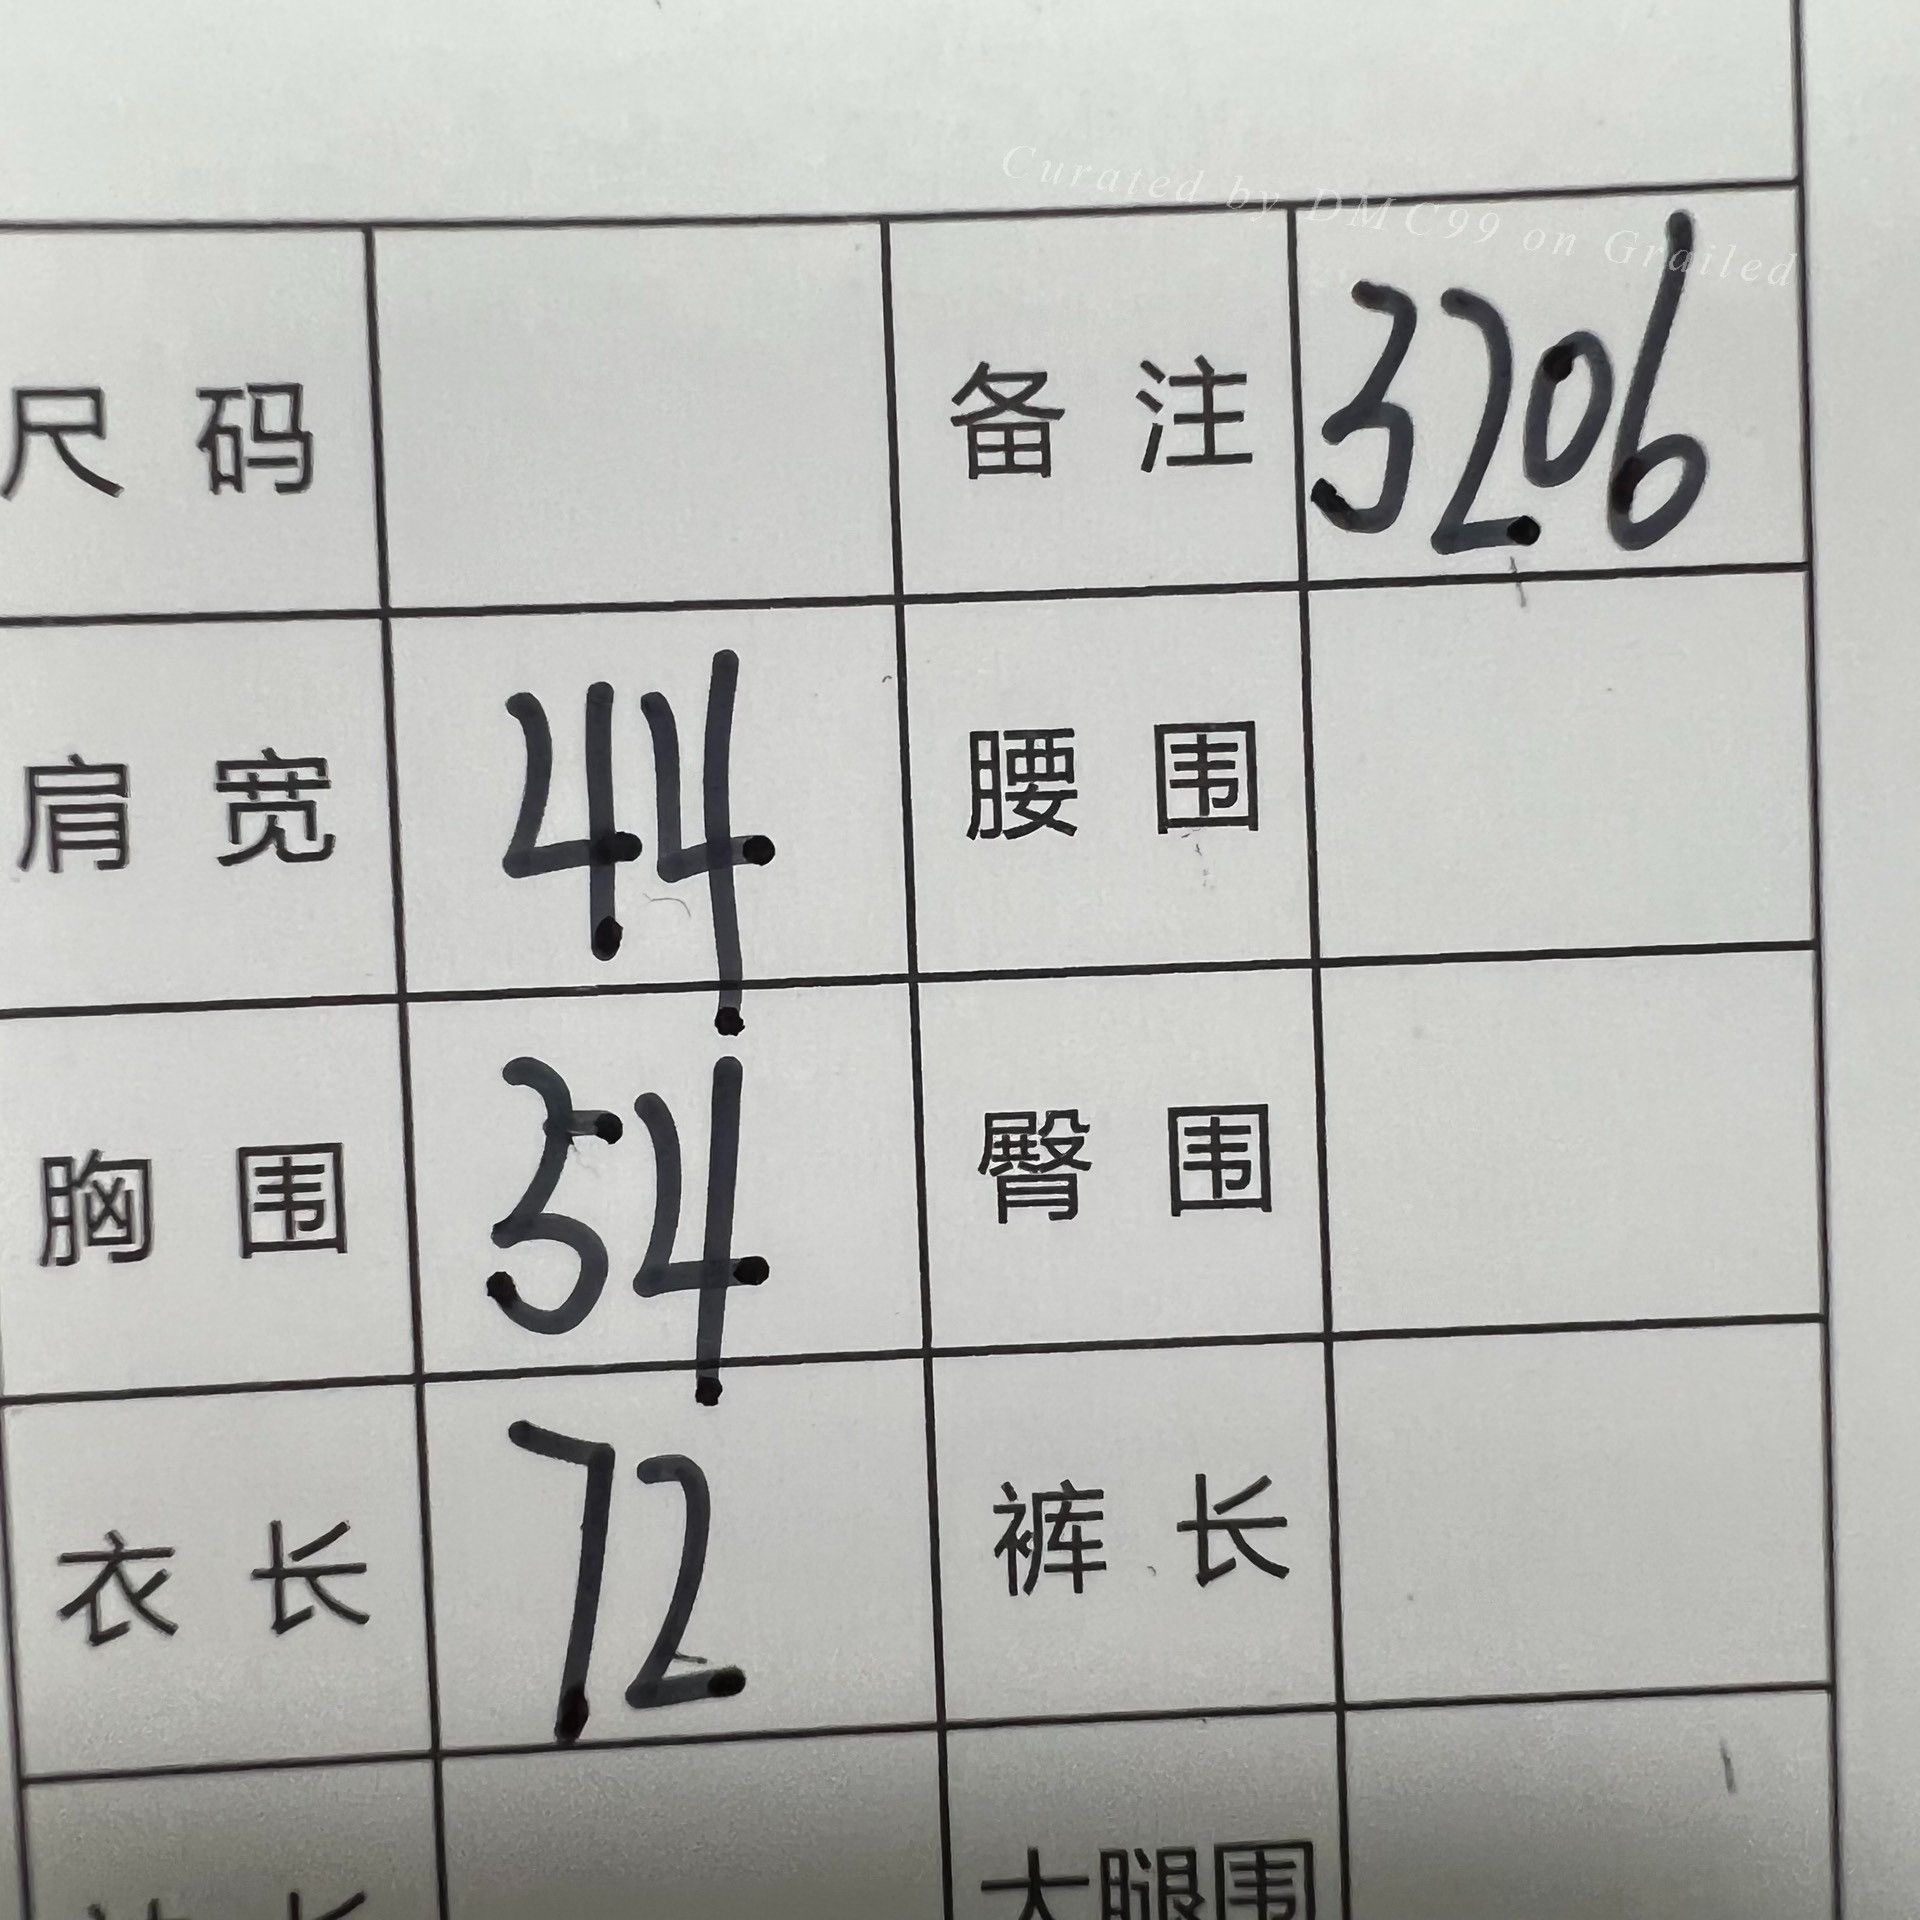 Curated by DMC99 on Grailed
尺码 备注 3206
肩宽 44 腰围
胸围 54 臀围
衣长 72 裤长
大腿围